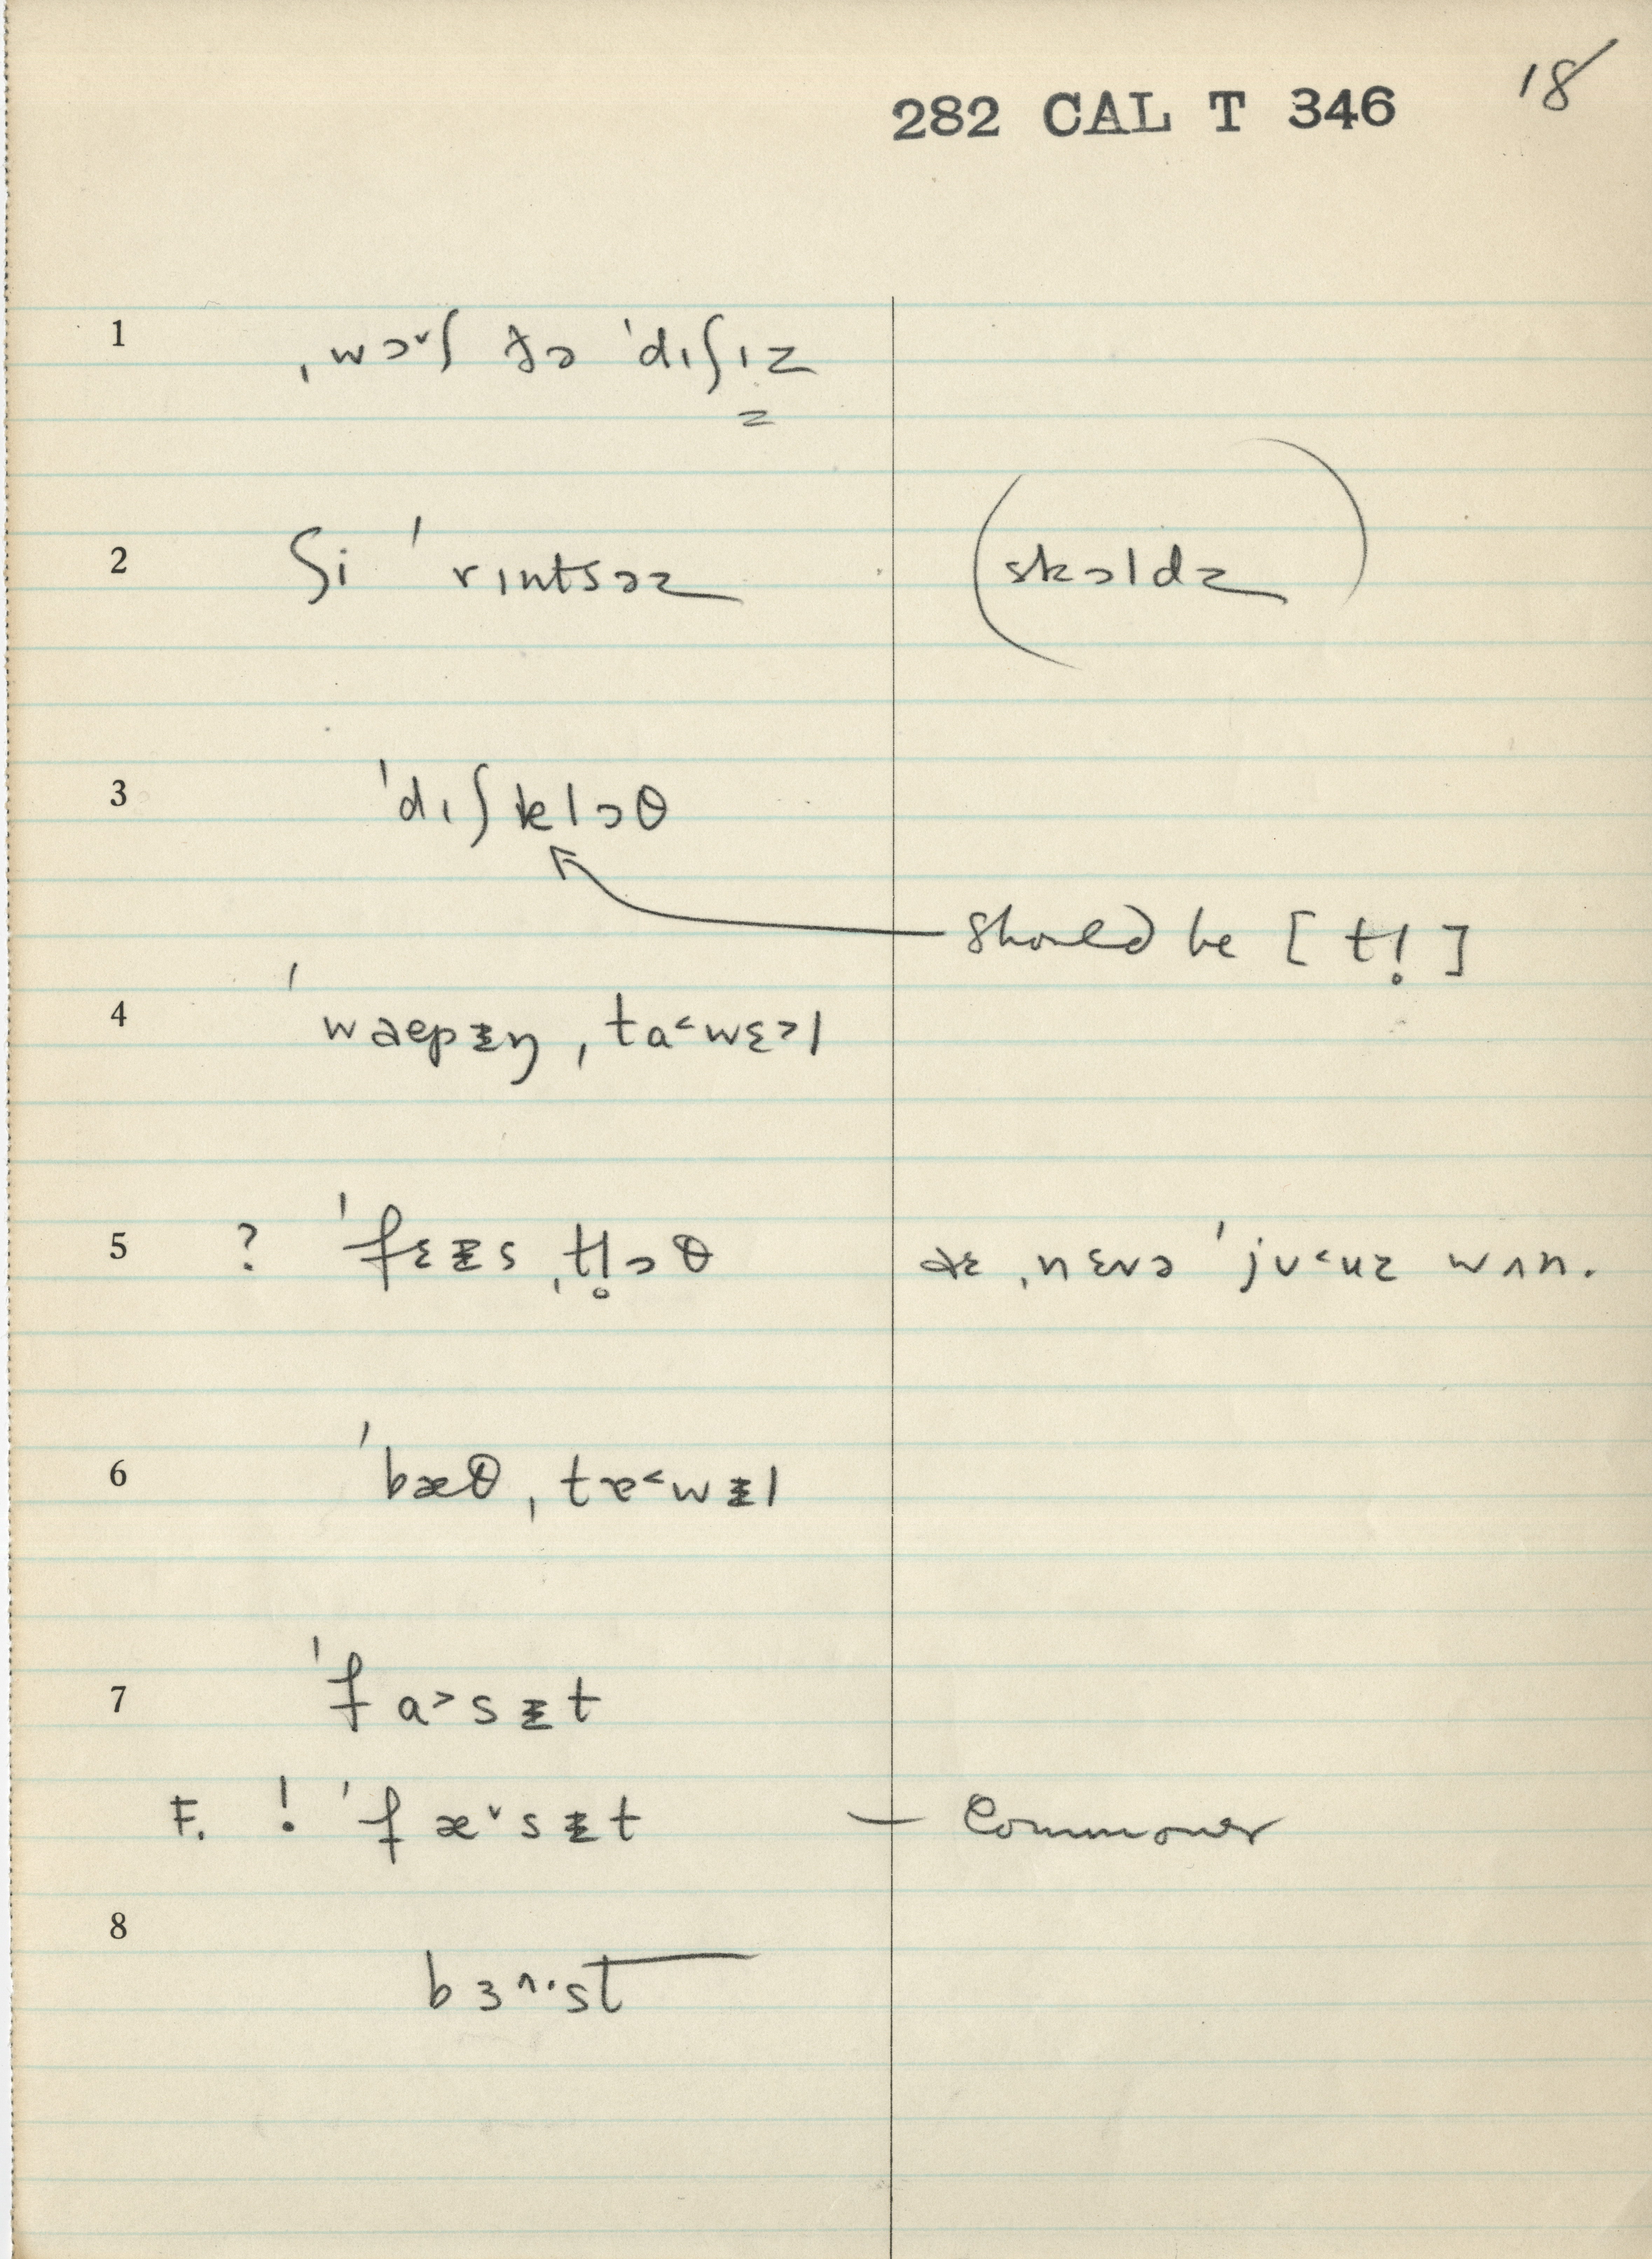 282 CAL T 346 18
1 ˌwɔ˅ʃ ðə ˈdɪʃɪz
z
2 ʃi ˈrɪntsəz (skɔldz)
3 ˈdɪʃklɔθ
should be [tl̥]
4 ˈwaepᵻŋ ˌta˂wɛ˃l
5 ? ˈfɛᵻs ˌtl̥ɔθ aɛ ˌnɛvə ˈjʊ˂uz wʌn.
6 ˈbæθ ˌtɐ˂wᵻl
7 ˈfa˃sᵻt
F. ! ˈfæ˅sᵻt — Commoner
8 bɜ˄·st